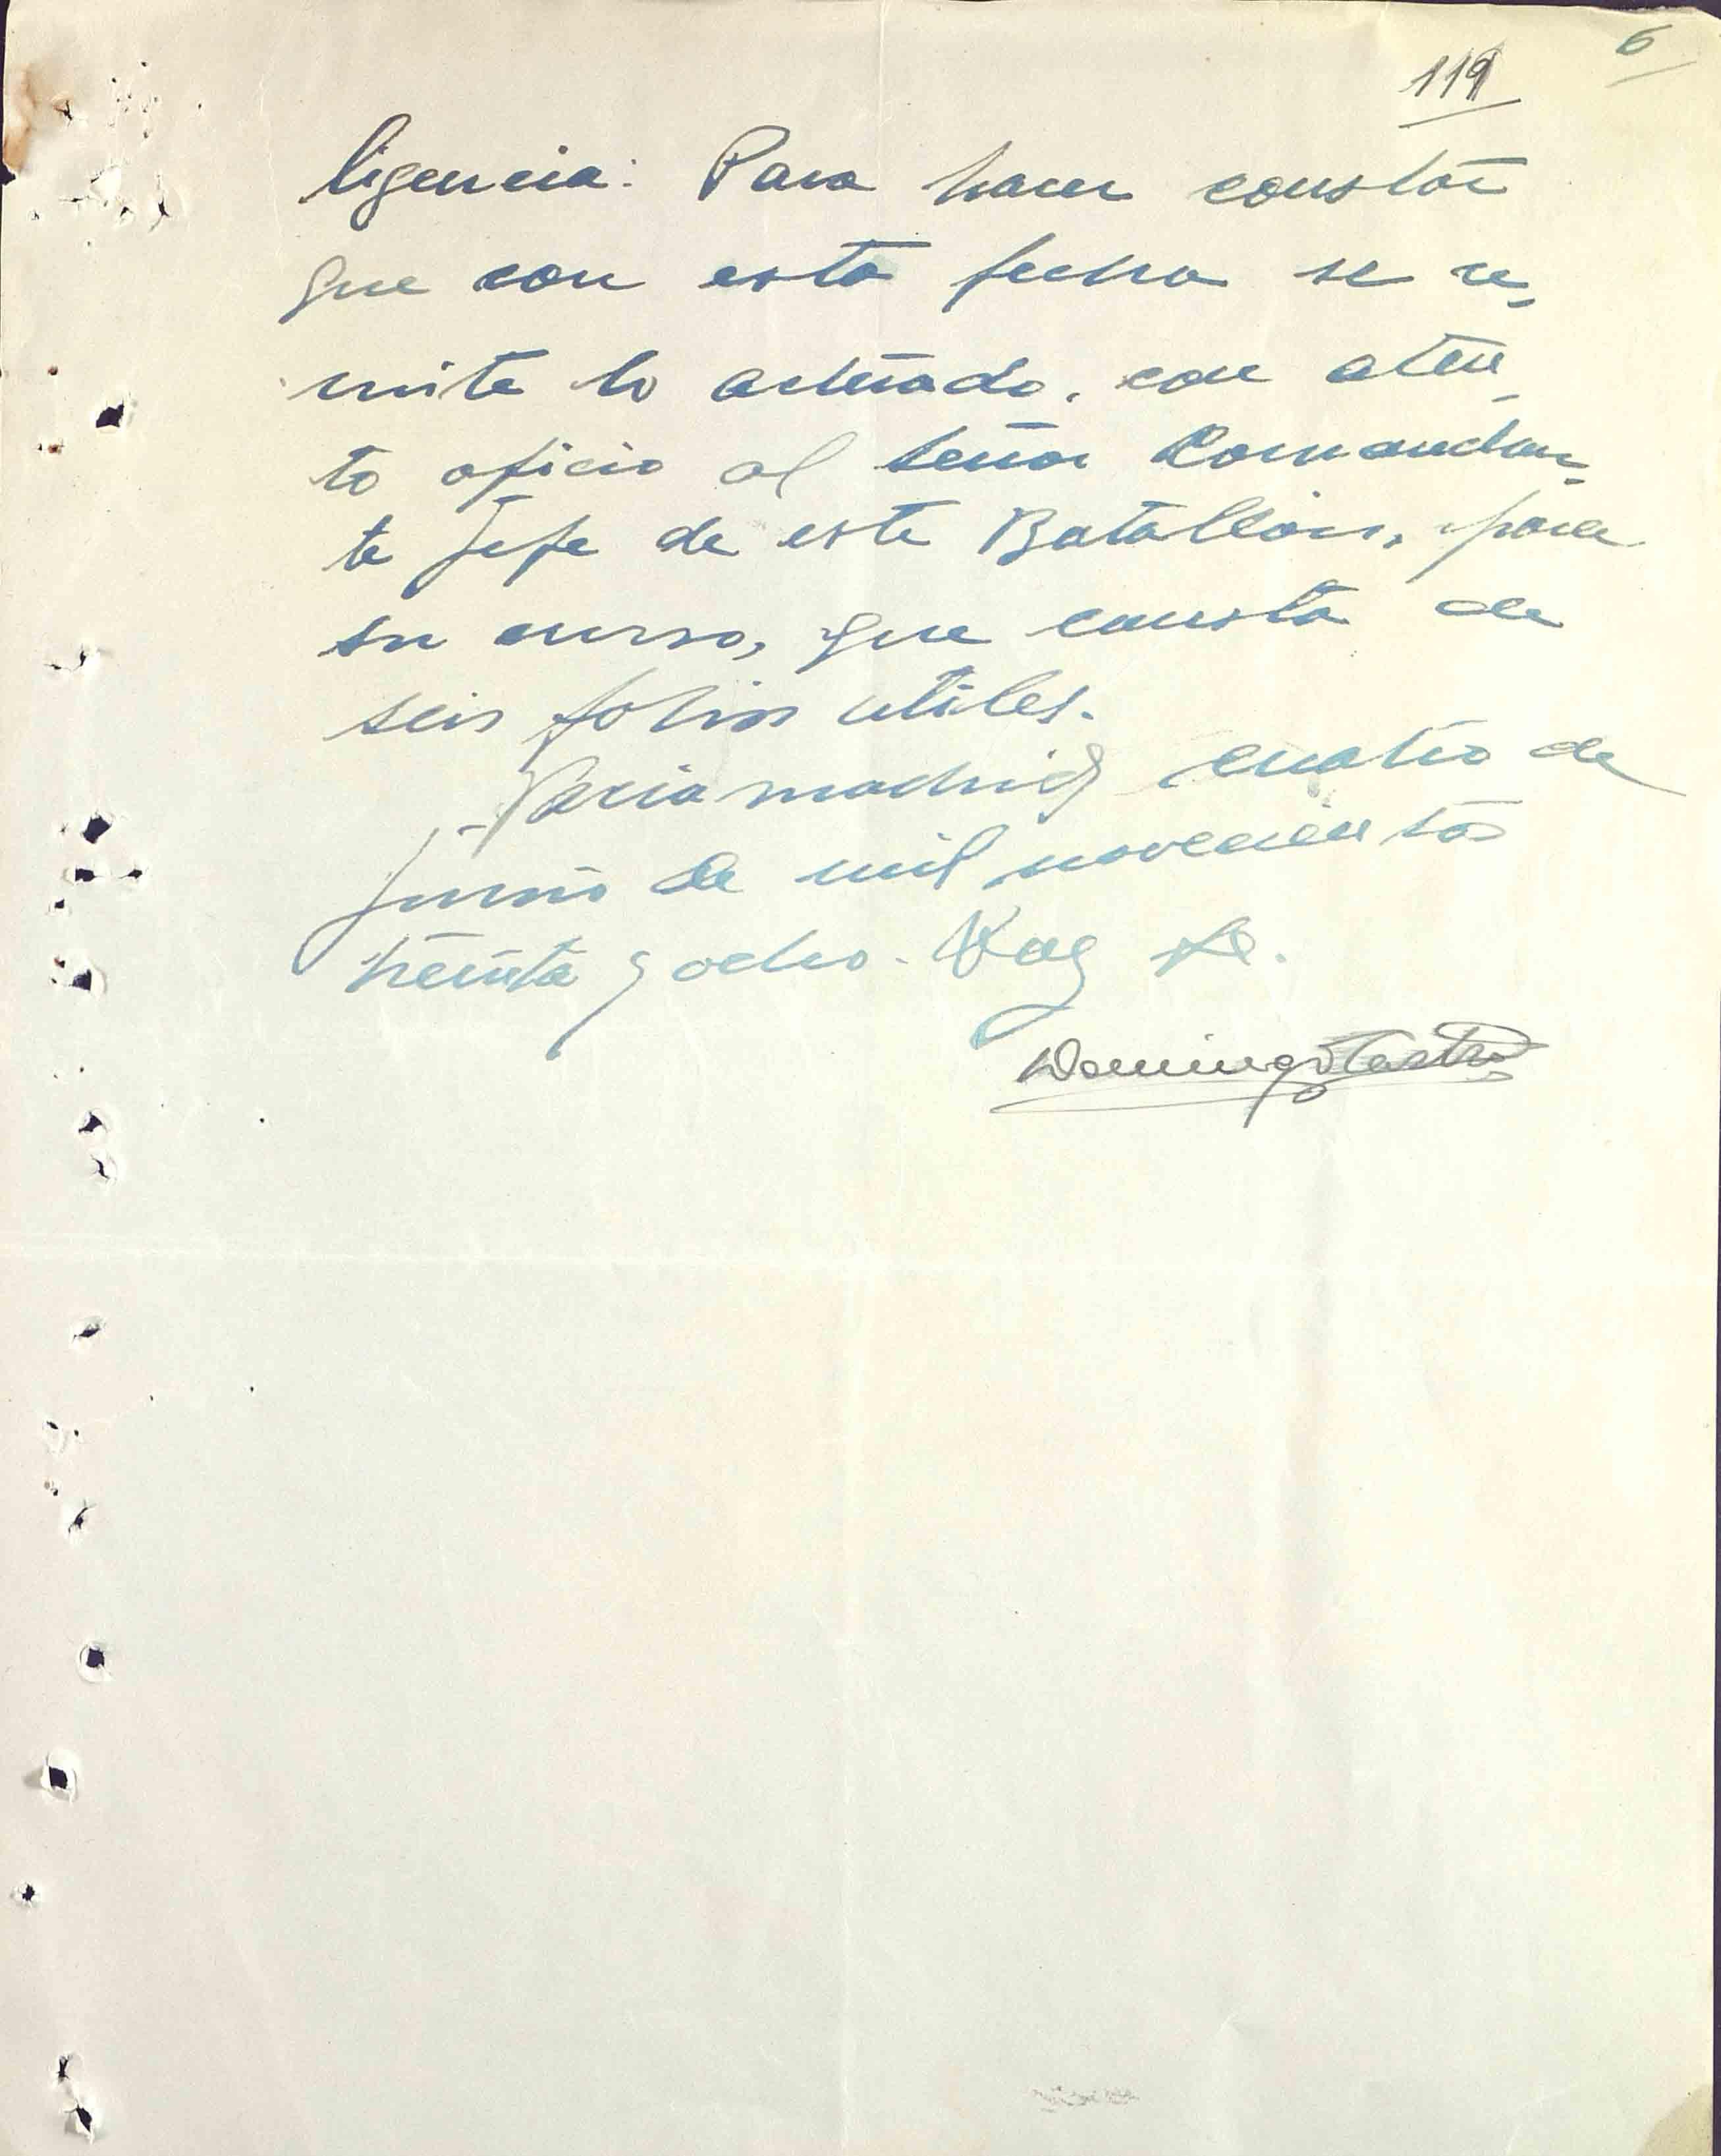 6
119
ligencia: Para hacer constar
que con esta fecha se re-
mite lo actuado, con aten-
to oficio al señor Comandan-
te Jefe de este Batallón, para
su curso, que consta de
seis folios utiles.
Vaciamadrid cuatro de
Junio de mil novecientos
treinta y ocho. Doy fe.
Domingo Castro